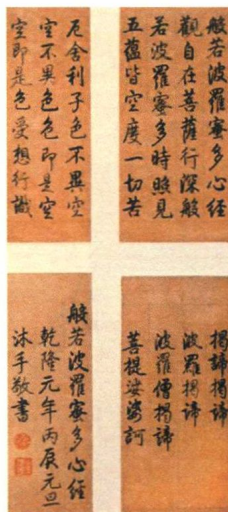 般若波羅蜜多心經
觀自在菩薩行深般
若波羅蜜多時照見
五蘊皆空度一切苦
厄舍利子色不異空
空不異色色即是空
空即是色受想行識
揭諦揭諦
波羅揭諦
波羅僧揭諦
菩提娑婆訶
般若波羅蜜多心經
乾隆元年丙辰元旦
沐手敬書